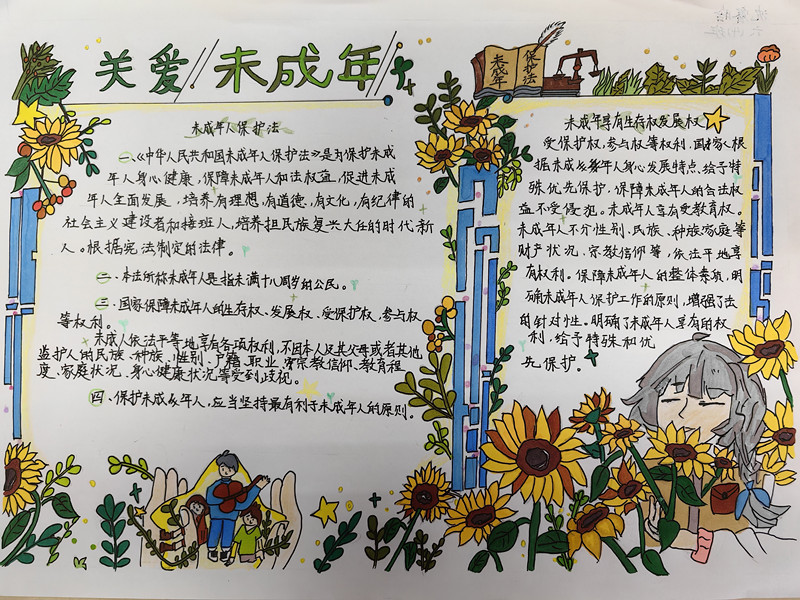 关爱 未成年
未成年
保护法
未成年人保护法
一、《中华人民共和国未成年人保护法》是为保护未成
年人身心健康，保障未成年人和法权益，促进未成
年人全面发展，培养有理想、有道德、有文化、有纪律的
社会主义建设者和接班人，培养担民族复兴大任的时代新
人。根据宪法制定的法律。
二、本法所称未成年人是指未满十八周岁的公民。
三、国家保障未成年人的生存权、发展权、受保护权、参与权
等权利。
未成人依法平等地享有各项权利，不因本人及其父母或者其他
监护人的民族、种族、性别、户籍、职业、宗教信仰、教育程
度、家庭状况、身心健康状况等受到歧视。
四、保护未成年人，应当坚持最有利于未成年人的原则。
未成年享有生存权发展权
受保护权，参与权等权利，国家根
据未成年人身心发展特点给予特
殊优先保护，保障未成年人的合法权
益不受侵犯。未成年人享有受教育权。
未成年人不分性别、民族、种族家庭等
财产状况、宗教信仰等，依法平地享
有权利。保障未成年人的整体素项，明
确未成年人保护工作的原则，增强了法
的针对性。明确了未成年人享有的权
利，给予特殊和优
先保护。